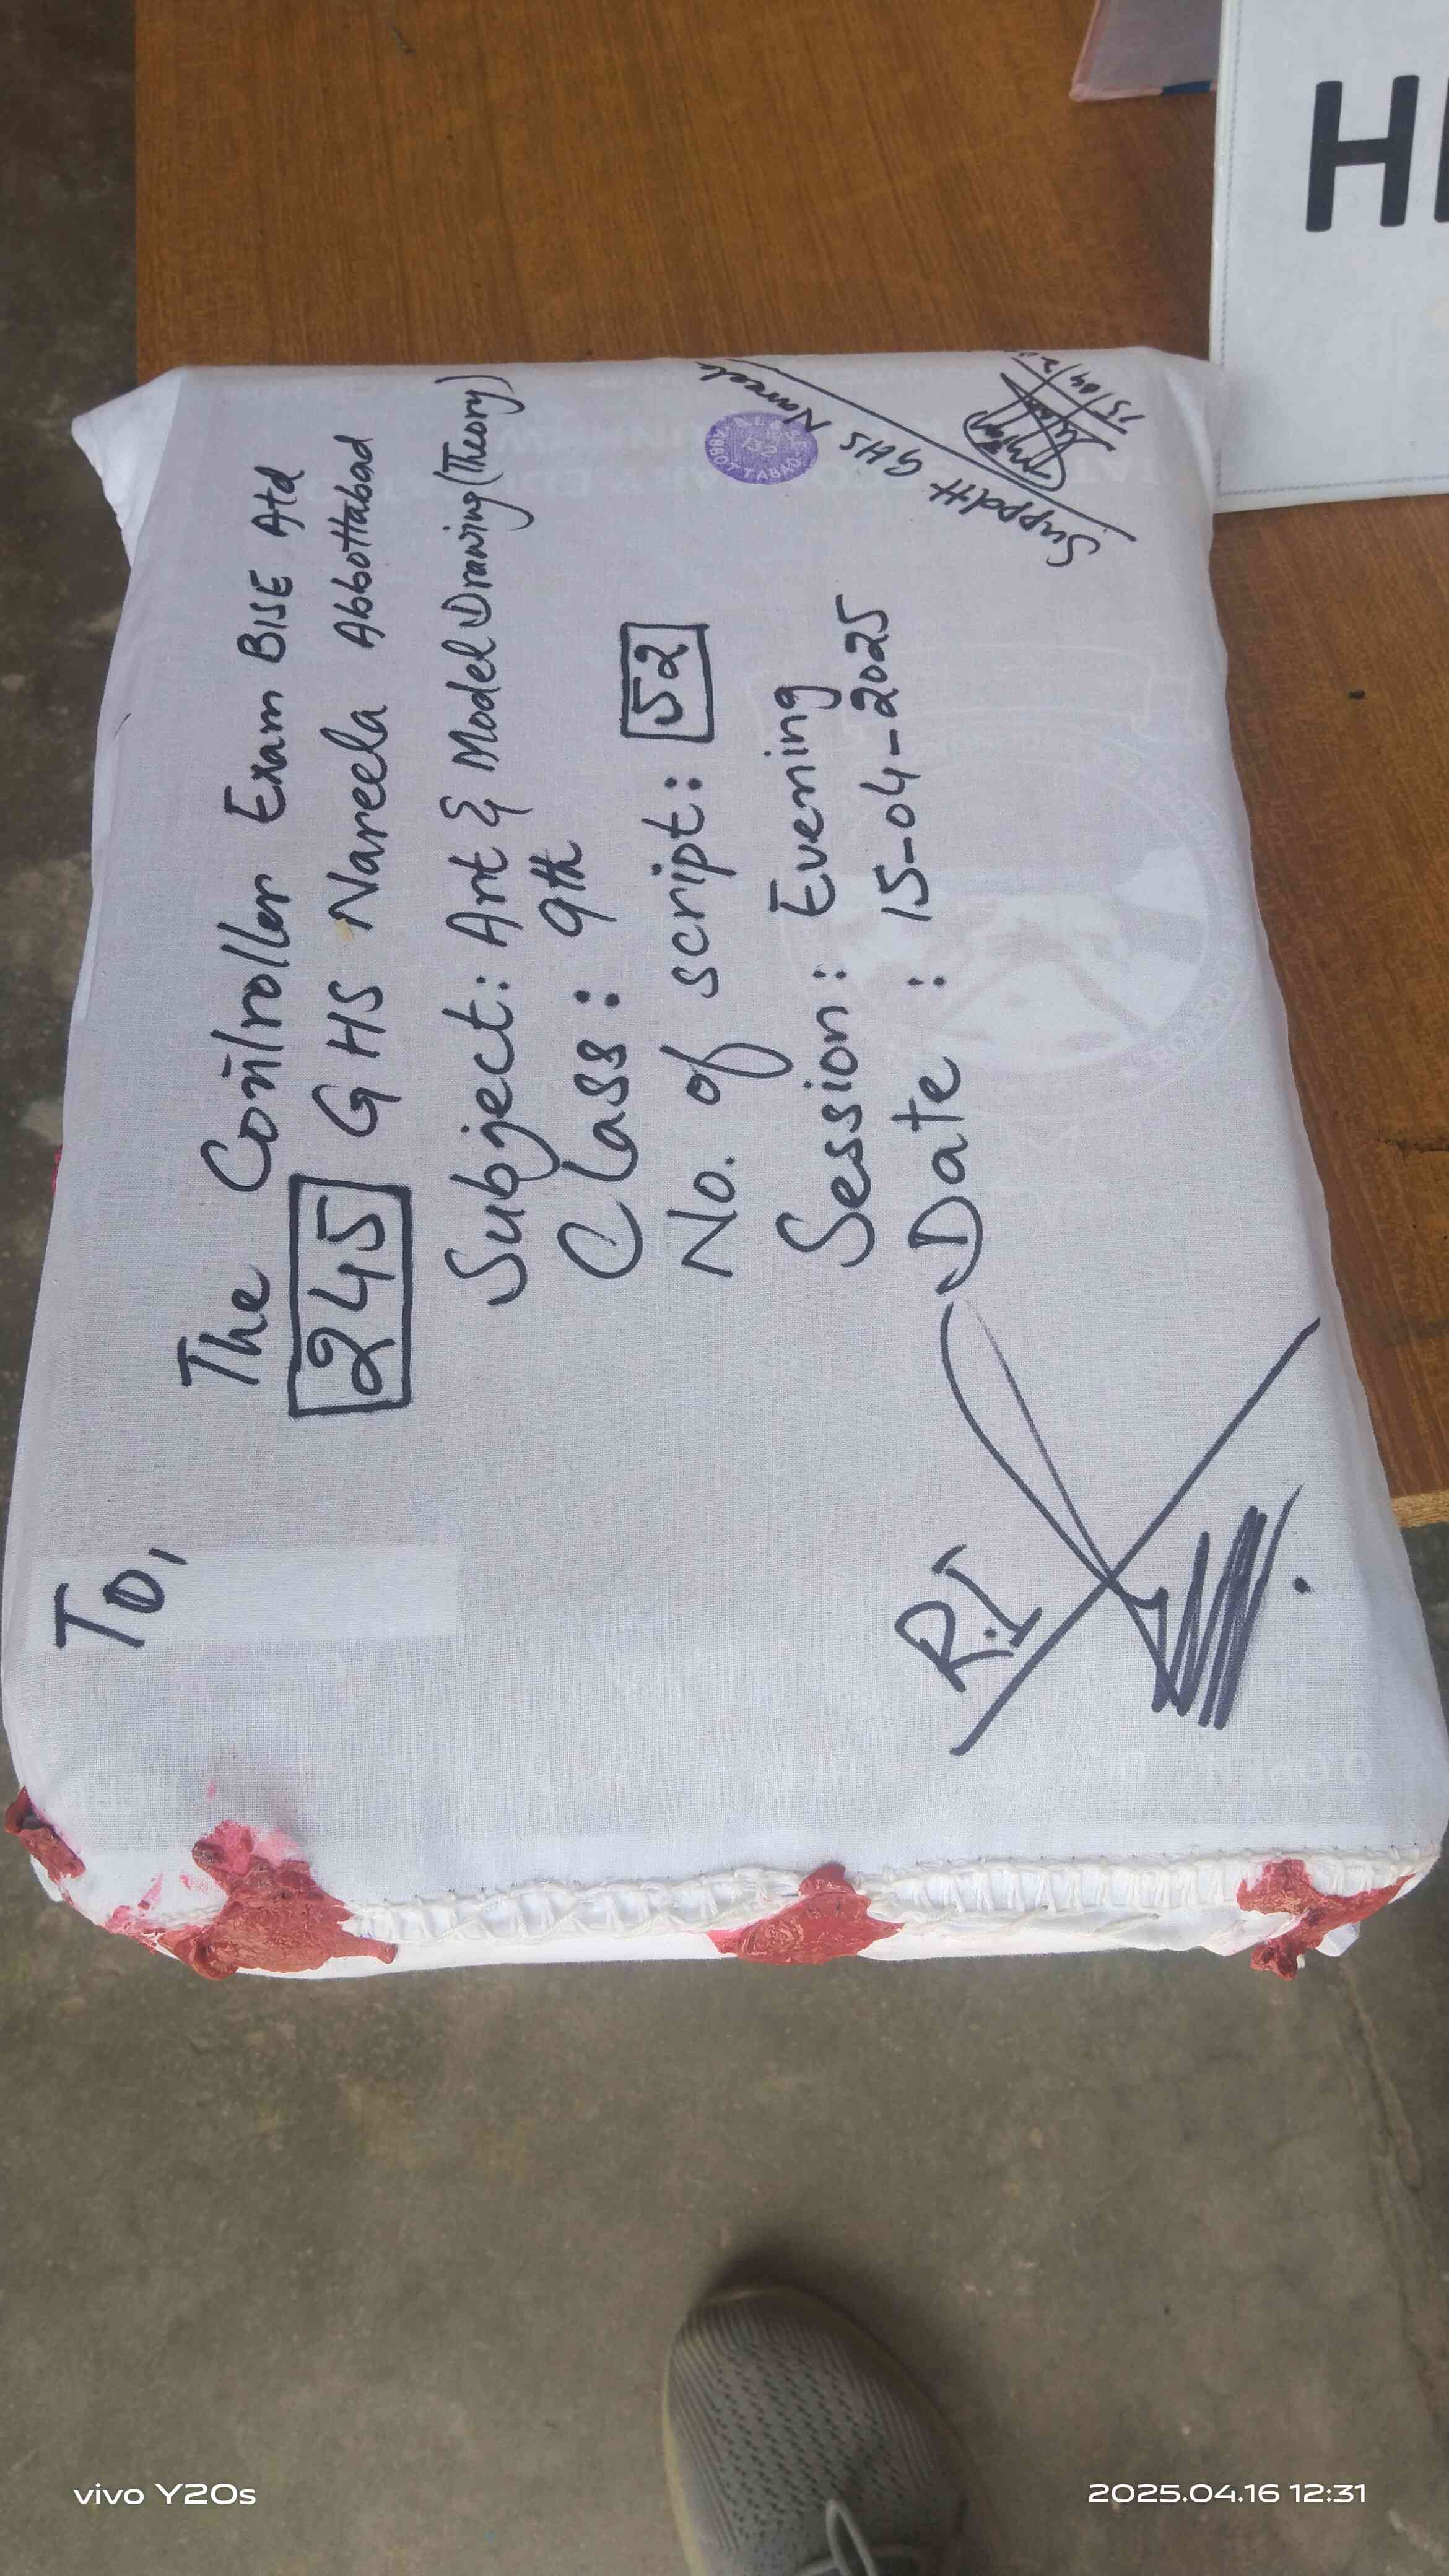 To,
The Controller Exam BISE Atd
245 GHS Nareela Abbottabad
Subject: Art & Model Drawing (Theory)
Class: 9th
No. of script: 52
Session: Evening
Date: 15-04-2025
R.I
Suppdtt GHS Nareela
15/04/2
132
ABBOTTABAD
HE
vivo Y20s
2025.04.16 12:31